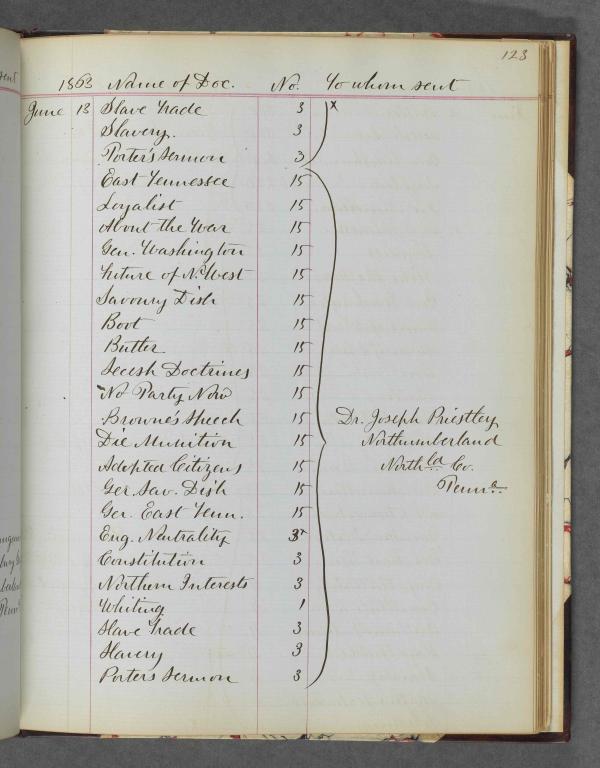 123
1863 Name of Doc. No. To whom sent
June 13 Slave Trade 3 x
Slavery. 3
Porter's Sermon 3
East Tennessee 15
Loyalist 15
About the War 15
Gen. Washington 15
Future of N. West 15
Savoury Dish 15
Boot 15
Butler 15
Secesh Doctrines 15
No Party Now 15
Browne's Speech 15 Dr. Joseph Priestley
Die Munition 15 Northumberland
Adopted Citizens 15 North Ld Co.
Ger. Sav. Dish 15 Penna
Ger. East Tenn. 15
Eng. Neutrality 3
Constitution 3
Northern Interests 3
Whiting 1
Slave Trade 3
Slavery 3
Porters Sermon 3